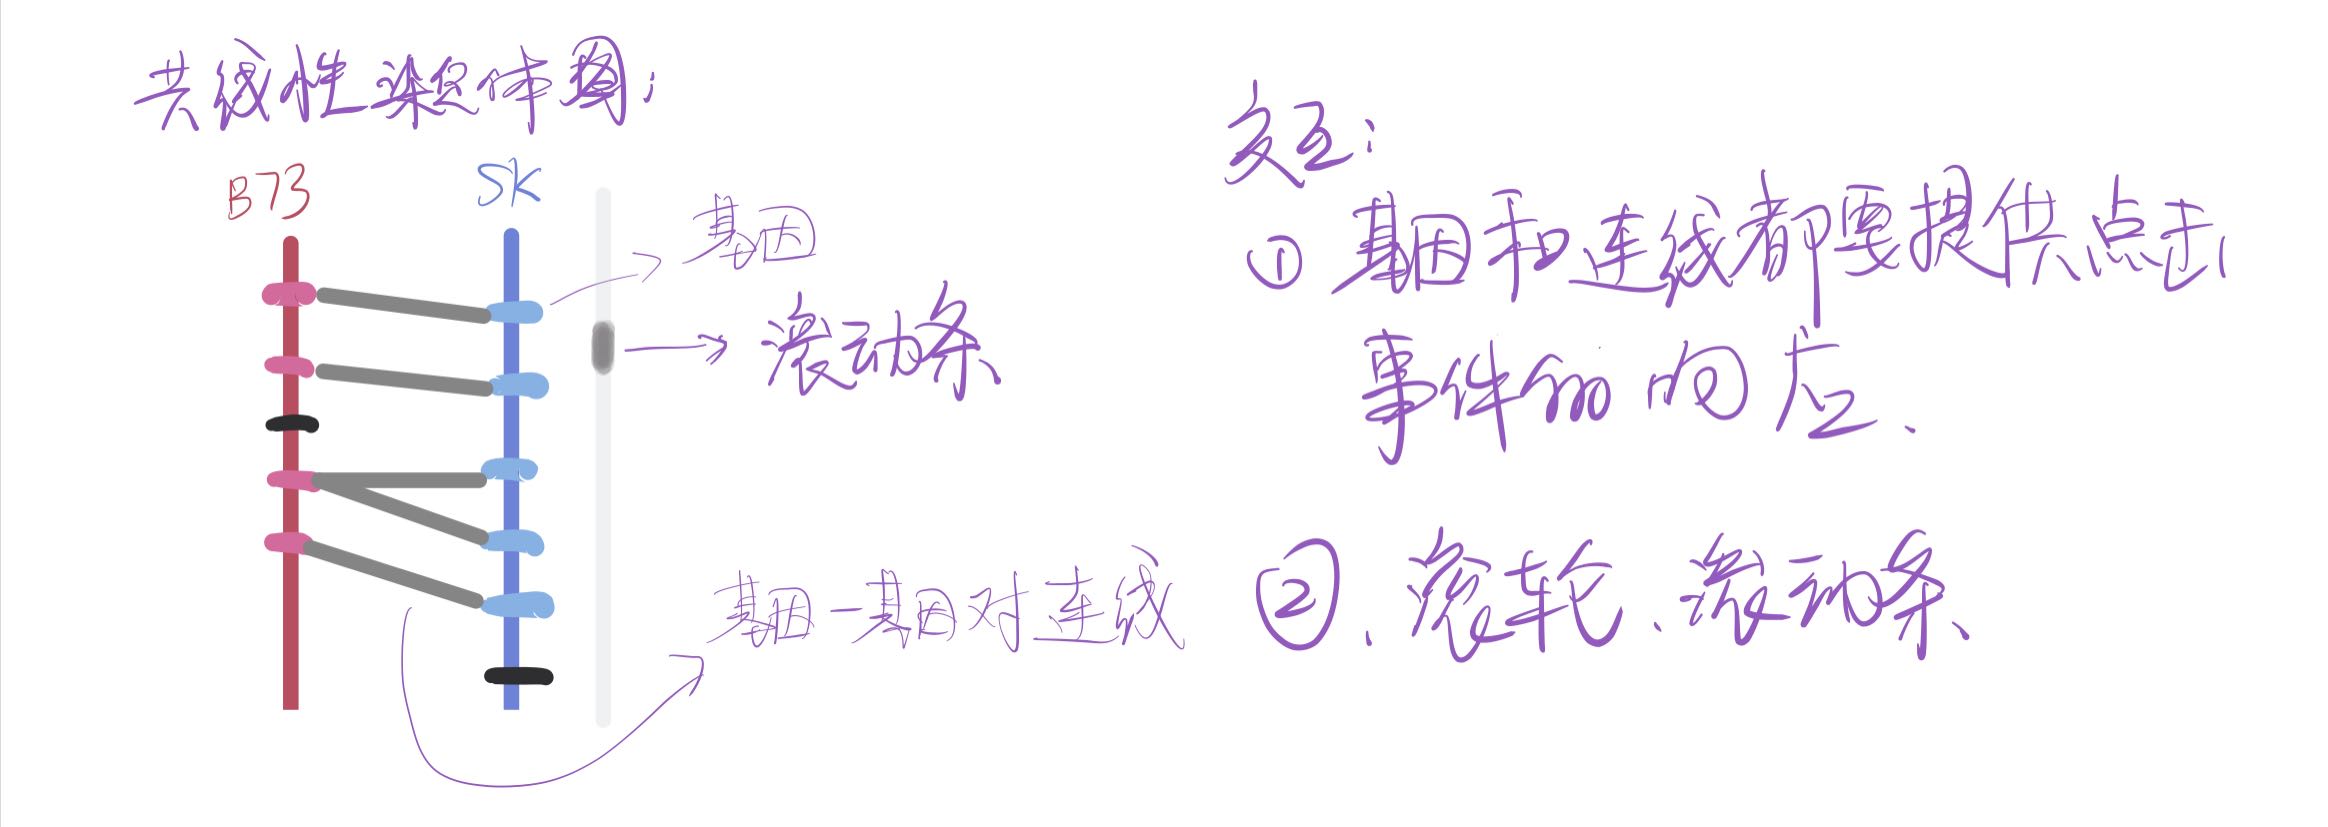 共线性染色体图：
B73
SK
基因
滚动条
基因-基因对连线
交互：
① 基因和连线都要提供点击
事件的响应.
②. 滚轮、滚动条、